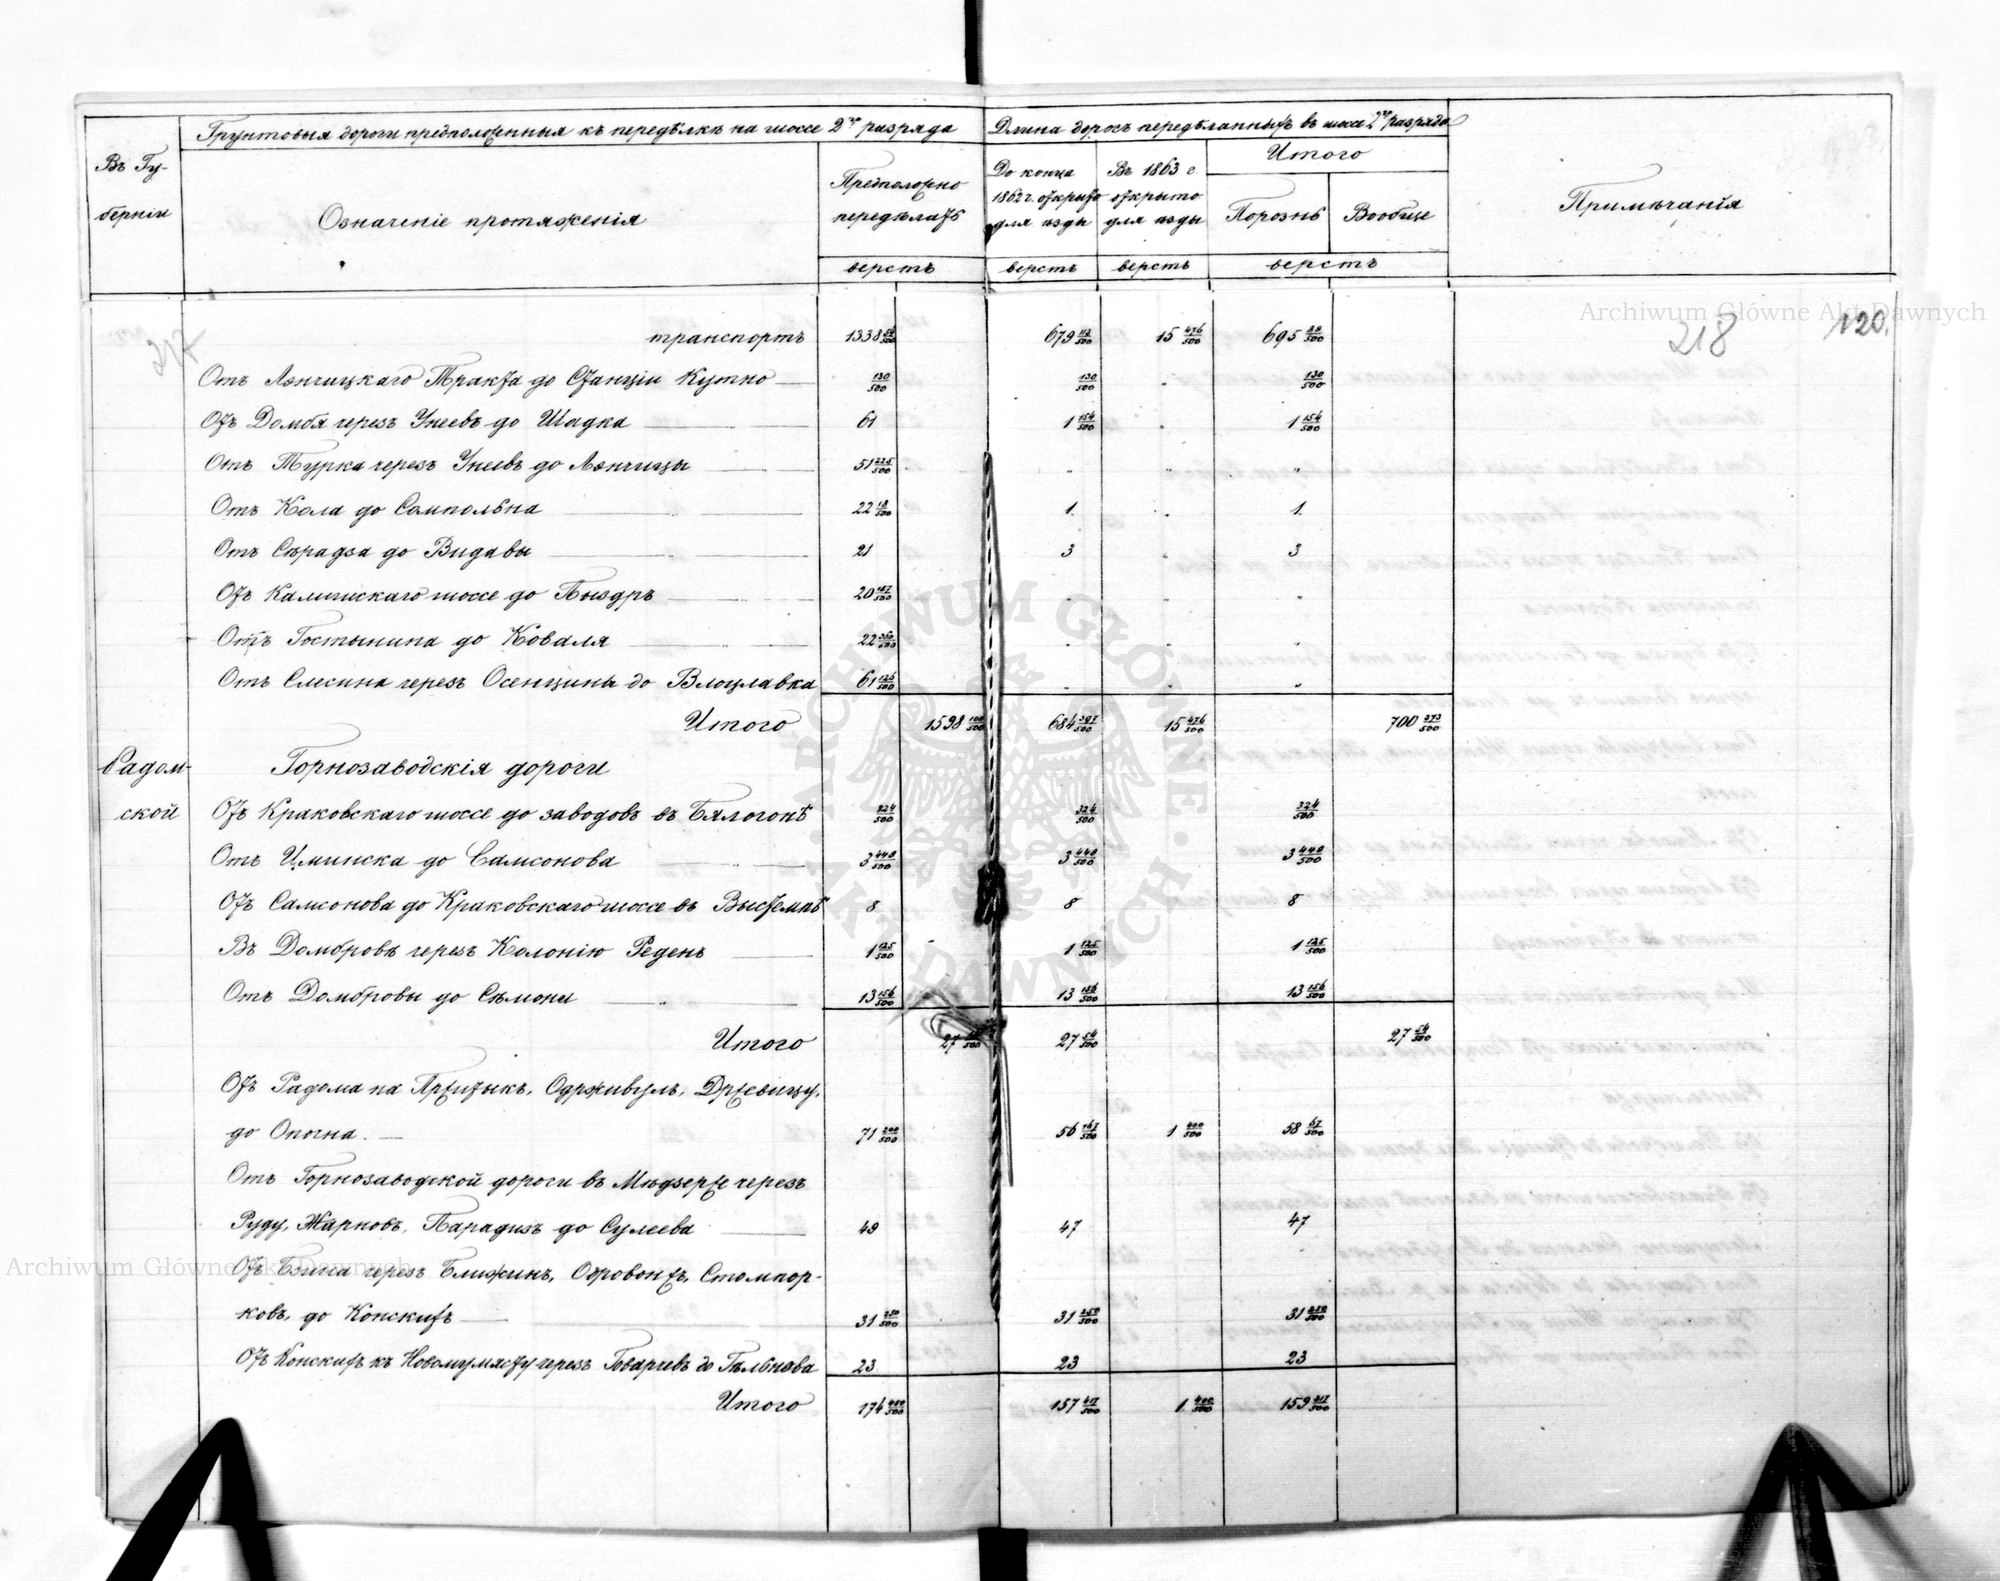 Грунтовыя дороги предположенныя къ передѣлкѣ на шоссе 2го разряда
Длина дорогъ передѣланныхъ въ шоссе 2го разряда
Въ Гу-
берніи
Означеніе протяженія
Предположено
передѣлать
До конца
1862 г. открыто
для ѣзды
Въ 1863 г.
открыто
для ѣзды
Итого
Порознь
Вообще
Примѣчанія
верстъ верстъ верстъ верстъ
Archiwum Główne Akt Dawnych
217
218
120.
транспортъ 1338 679 112/500 15 476/500 695 88/500
Отъ Лэнчицкаго Тракта до Станціи Кутно 130/500 130/500 „ 130/500
Отъ Домбя черезъ Унеевъ до Шадка 61 1 154/500 „ 1 154/500
Отъ Турка черезъ Унеевъ до Лэнчицы 51 225/500 „ „ „
Отъ Кола до Сомпольна 22 18/500 1 „ 1
Отъ Сѣрадза до Видавы 21 3 „ 3
Отъ Калишскаго шоссе до Пыздръ 20 187/500 „ „ „
Отъ Гостынина до Коваля 22 360/500 „ „ „
Отъ Слесина черезъ Осенцины до Влоцлавка 61 126/500 „ „ „
Итого 1598 100/500 684 397/500 15 476/500 700 373/500
Радом-
ской
Горнозаводскія дороги
Отъ Краковскаго шоссе до заводовъ въ Бялогонѣ 324/500 324/500 324/500
Отъ Цминска до Самсонова 3 449/500 3 449/500 3 449/500
Отъ Самсонова до Краковскаго шоссе въ Выстемпѣ 8 8 8
Въ Домбровѣ черезъ Колонію Реденъ 1 125/500 1 125/500 1 125/500
Отъ Домбровы до Сѣмони 13 156/500 13 156/500 13 156/500
Итого 27 54/500 27 54/500 27 54/500
Отъ Радома на Пржитыкъ, Одрживулъ, Држевицу,
до Опочна. 71 200/500 56 167/500 1 400/500 58 67/500
Отъ Горнозаводской дороги въ Мѣдзержѣ черезъ
Руду, Жарновъ, Парадизъ до Сулеева 49 47 47
Archiwum Główne Akt Dawnych
Отъ Бзина черезъ Ближинъ, Одровонжъ, Стомпор-
ковъ, до Конскихъ 31 250/500 31 250/500 31 250/500
Отъ Конскихъ къ Новомумясту черезъ Говарчевъ до Гѣльнёва 23 23 23
Итого 174 450/500 157 417/500 1 400/500 159 317/500
ARCHIWUM GŁÓWNE AKT DAWNYCH